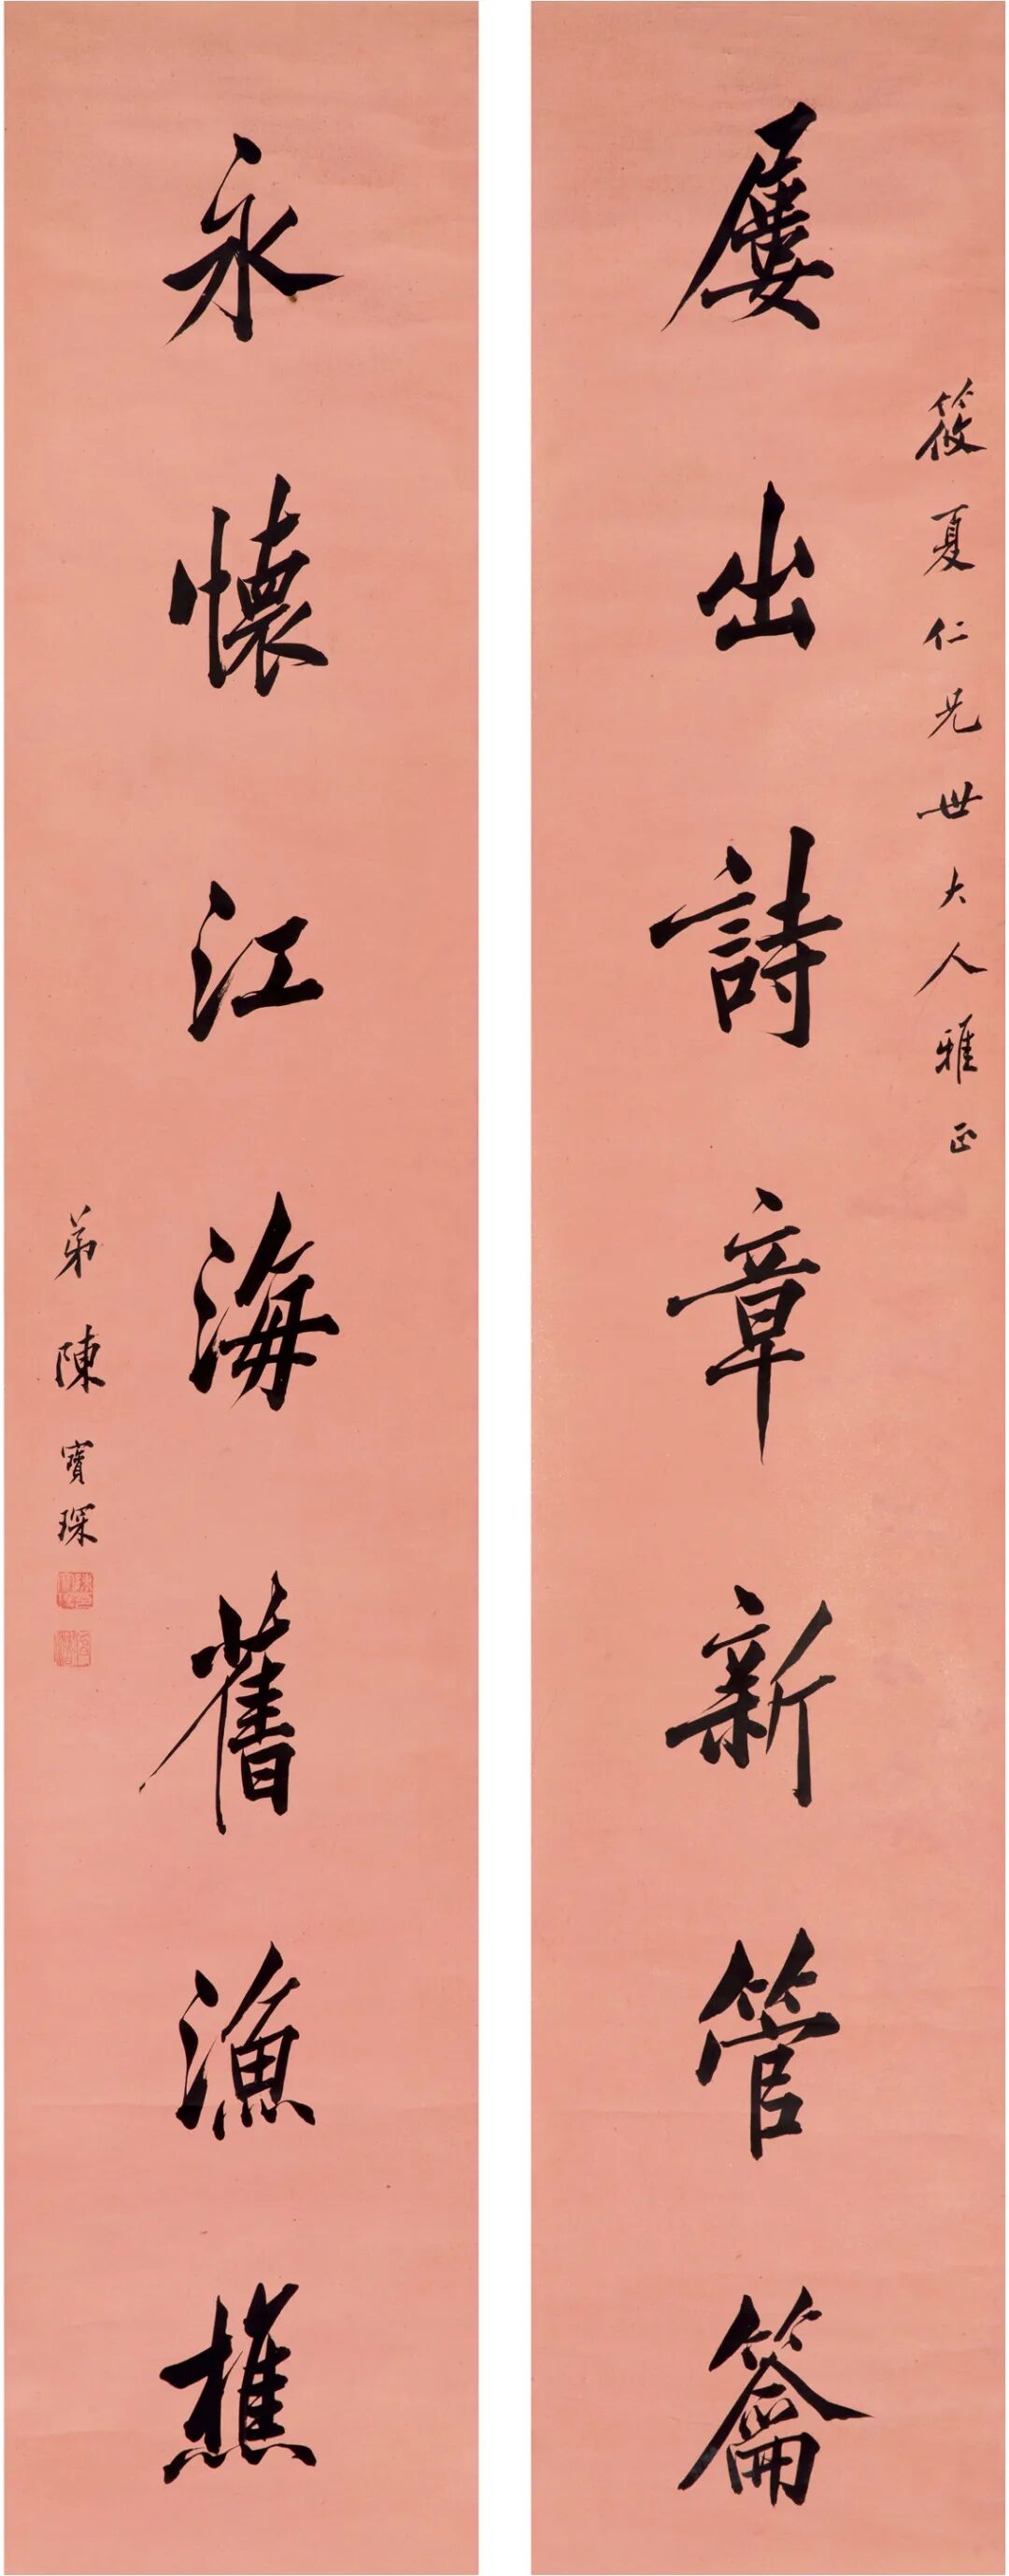 筱夏仁兄世大人雅正
屢出詩章新管籥
永懷江海舊漁樵
弟陳寶琛